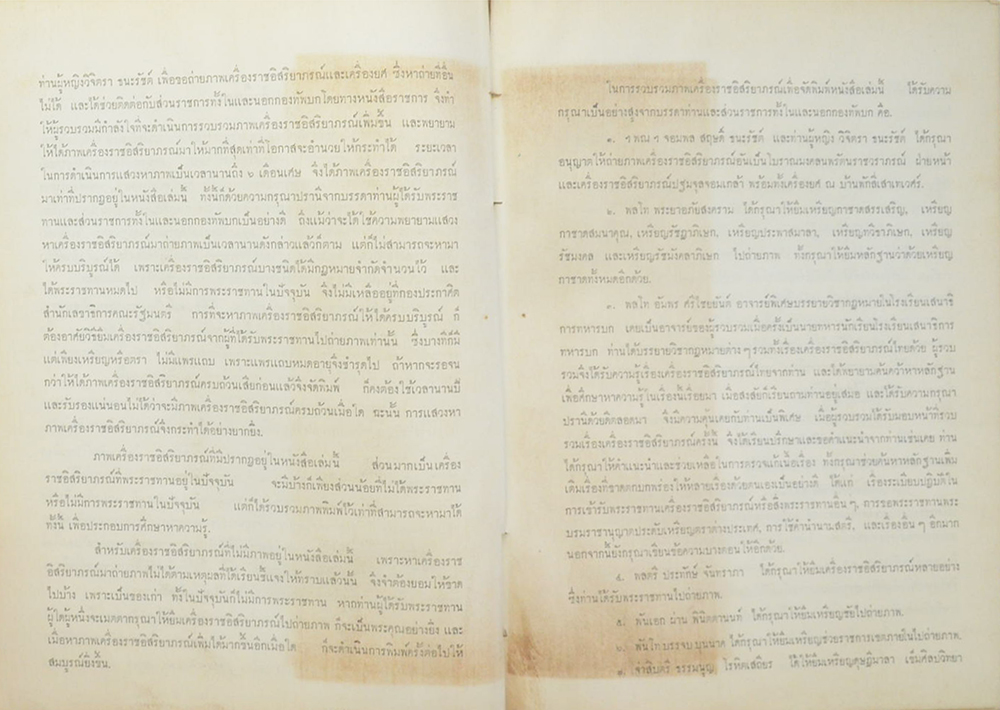 ท่านผู้หญิงวิจิตรา ธนะรัชต์ เพื่อขอถ่ายภาพเครื่องราชอิสริยาภรณ์และเครื่องยศ ซึ่งหาถ่ายที่อื่น
ไม่ได้ และได้ช่วยติดต่อกับส่วนราชการทั้งในและนอกกองทัพบกโดยทางหนังสือราชการ จึงทำ
ให้ผู้รวบรวมมีกำลังใจที่จะดำเนินการรวบรวมภาพเครื่องราชอิสริยาภรณ์เพิ่มขึ้น และพยายาม
ให้ได้ภาพเครื่องราชอิสริยาภรณ์มาให้มากที่สุดเท่าที่โอกาสจะอำนวยให้กระทำได้ ระยะเวลา
ในการดำเนินการแสวงหาภาพเป็นเวลานานถึง ๖ เดือนเศษ จึงได้ภาพเครื่องราชอิสริยาภรณ์
มาเท่าที่ปรากฏอยู่ในหนังสือเล่มนี้ ทั้งนี้ก็ด้วยความกรุณาปรานีจากบรรดาท่านผู้ได้รับพระราช
ทานและส่วนราชการทั้งในและนอกกองทัพบกเป็นอย่างดี ถึงแม้ว่าจะได้ใช้ความพยายามแสวง
หาเครื่องราชอิสริยาภรณ์มาถ่ายภาพเป็นเวลานานดังกล่าวแล้วก็ตาม แต่ก็ไม่สามารถจะหามา
ให้ครบบริบูรณ์ได้ เพราะเครื่องราชอิสริยาภรณ์บางชนิดได้มีกฎหมายจำกัดจำนวนไว้ และ
ได้พระราชทานหมดไป หรือไม่มีการพระราชทานในปัจจุบัน จึงไม่มีเหลืออยู่ที่กองประกาศิต
สำนักเลขาธิการคณะรัฐมนตรี การที่จะหาภาพเครื่องราชอิสริยาภรณ์ให้ได้ครบบริบูรณ์ ก็
ต้องอาศัยวิธียืมเครื่องราชอิสริยาภรณ์จากผู้ที่ได้รับพระราชทานไปถ่ายภาพเท่านั้น ซึ่งบางทีก็มี
แต่เพียงเหรียญหรือตรา ไม่มีแพรแถบ เพราะแพรแถบหมดอายุซึ่งชำรุดไป ถ้าหากจะรอจน
กว่าให้ได้ภาพเครื่องราชอิสริยาภรณ์ครบถ้วนเสียก่อนแล้วจึงจัดพิมพ์ ก็คงต้องใช้เวลานานปี
และรับรองแน่นอนไม่ได้ว่าจะมีภาพเครื่องราชอิสริยาภรณ์ครบถ้วนเมื่อใด ฉะนั้น การแสวงหา
ภาพเครื่องราชอิสริยาภรณ์จึงกระทำได้อย่างยากยิ่ง.
ภาพเครื่องราชอิสริยาภรณ์ที่มีปรากฏอยู่ในหนังสือเล่มนี้ ส่วนมากเป็นเครื่อง
ราชอิสริยาภรณ์ที่พระราชทานอยู่ในปัจจุบัน จะมีบ้างก็เพียงส่วนน้อยที่ไม่ได้พระราชทาน
หรือไม่มีการพระราชทานในปัจจุบัน แต่ก็ได้รวบรวมภาพพิมพ์ไว้เท่าที่สามารถจะหามาได้
ทั้งนี้ เพื่อประกอบการศึกษาหาความรู้.
สำหรับเครื่องราชอิสริยาภรณ์ที่ไม่มีภาพอยู่ในหนังสือเล่มนี้ เพราะหาเครื่องราช
อิสริยาภรณ์มาถ่ายภาพไม่ได้ตามเหตุผลที่ได้เรียนชี้แจงให้ทราบแล้วนั้น จึงจำต้องยอมให้ขาด
ไปบ้าง เพราะเป็นของเก่า ทั้งในปัจจุบันก็ไม่มีการพระราชทาน หากท่านผู้ได้รับพระราชทาน
ผู้ใดผู้หนึ่งจะเมตตากรุณาให้ยืมเครื่องราชอิสริยาภรณ์ไปถ่ายภาพ ก็จะเป็นพระคุณอย่างยิ่ง และ
เมื่อหาภาพเครื่องราชอิสริยาภรณ์เพิ่มได้มากขึ้นอีกเมื่อใด ก็จะดำเนินการพิมพ์ครั้งต่อไปให้
สมบูรณ์ยิ่งขึ้น.
ในการรวบรวมภาพเครื่องราชอิสริยาภรณ์เพื่อจัดพิมพ์หนังสือเล่มนี้ ได้รับความ
กรุณาเป็นอย่างสูงจากบรรดาท่านและส่วนราชการทั้งในและนอกกองทัพบก คือ.
๑. ฯพณฯ จอมพล สฤษดิ์ ธนะรัชต์ และท่านผู้หญิง วิจิตรา ธนะรัชต์ ได้กรุณา
อนุญาตให้ถ่ายภาพเครื่องราชอิสริยาภรณ์อันเป็นโบราณมงคลนพรัตนราชวราภรณ์ ฝ่ายหน้า
และเครื่องราชอิสริยาภรณ์ปฐมจุลจอมเกล้า พร้อมทั้งเครื่องยศ ณ บ้านพักสี่เสาเทเวศร์.
๒. พลโท พระยาอภัยสงคราม ได้กรุณาให้ยืมเหรียญกาชาดสรรเสริญ, เหรียญ
กาชาดสมนาคุณ, เหรียญรัชฎาภิเษก, เหรียญประพาสมาลา, เหรียญทวีธาภิเษก, เหรียญ
รัชมงคล และเหรียญรัชมังคลาภิเษก ไปถ่ายภาพ ทั้งกรุณาให้ยืมหลักฐานว่าด้วยเหรียญ
กาชาดทั้งหมดอีกด้วย.
๓. พลโท อัมพร ศรีไชยยันต์ อาจารย์พิเศษบรรยายวิชากฎหมายในโรงเรียนเสนาธิ
การทหารบก เคยเป็นอาจารย์ของผู้รวบรวมเมื่อครั้งเป็นนายทหารนักเรียนโรงเรียนเสนาธิการ
ทหารบก ท่านได้บรรยายวิชากฎหมายต่างๆ รวมทั้งเรื่องเครื่องราชอิสริยาภรณ์ไทยด้วย ผู้รวบ
รวมจึงได้รับความรู้เรื่องเครื่องราชอิสริยาภรณ์ไทยจากท่าน และได้พยายามค้นคว้าหาหลักฐาน
เพื่อศึกษาหาความรู้ในเรื่องนี้เรื่อยมา เมื่อสงสัยก็เรียนถามท่านอยู่เสมอ และได้รับความกรุณา
ปรานีด้วยดีตลอดมา จึงมีความคุ้นเคยกับท่านเป็นพิเศษ เมื่อผู้รวบรวมได้รับมอบหน้าที่รวบ
รวมเรื่องเครื่องราชอิสริยาภรณ์ครั้งนี้ จึงได้เรียนปรึกษาและขอคำแนะนำจากท่านเช่นเคย ท่าน
ได้กรุณาให้คำแนะนำและช่วยเหลือในการตรวจแก้เนื้อเรื่อง ทั้งกรุณาช่วยค้นหาหลักฐานเพิ่ม
เติมเรื่องที่ขาดตกบกพร่องให้หลายเรื่องด้วยตนเองเป็นอย่างดี ได้แก่ เรื่องระเบียบปฏิบัติใน
การเข้ารับพระราชทานเครื่องราชอิสริยาภรณ์หรือสิ่งพระราชทานอื่นๆ, การขอพระราชทานพระ
บรมราชานุญาตประดับเหรียญตราต่างประเทศ, การใช้คำนำนามสตรี, และเรื่องอื่นๆ อีกมาก
นอกจากนี้ยังกรุณาเขียนข้อความบางตอนให้อีกด้วย.
๔. พลตรี ประทักษ์ จันทราภา ได้กรุณาให้ยืมเครื่องราชอิสริยาภรณ์หลายอย่าง
ซึ่งท่านได้รับพระราชทานไปถ่ายภาพ.
๕. พันเอก ม่าน พินิตตานนท์ ได้กรุณาให้ยืมเหรียญชัยไปถ่ายภาพ.
๖. พันโท บรรจบ บุนนาค ได้กรุณาให้ยืมเหรียญช่วยราชการเขตภายในไปถ่ายภาพ.
๗. จ่าสิบตรี ธรรมนูญ โรหิตเสถียร ได้ให้ยืมเหรียญดุษฎีมาลา เข็มศิลปวิทยา